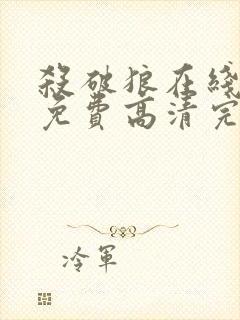 殺破狼在綫
免費高清完
冷軍